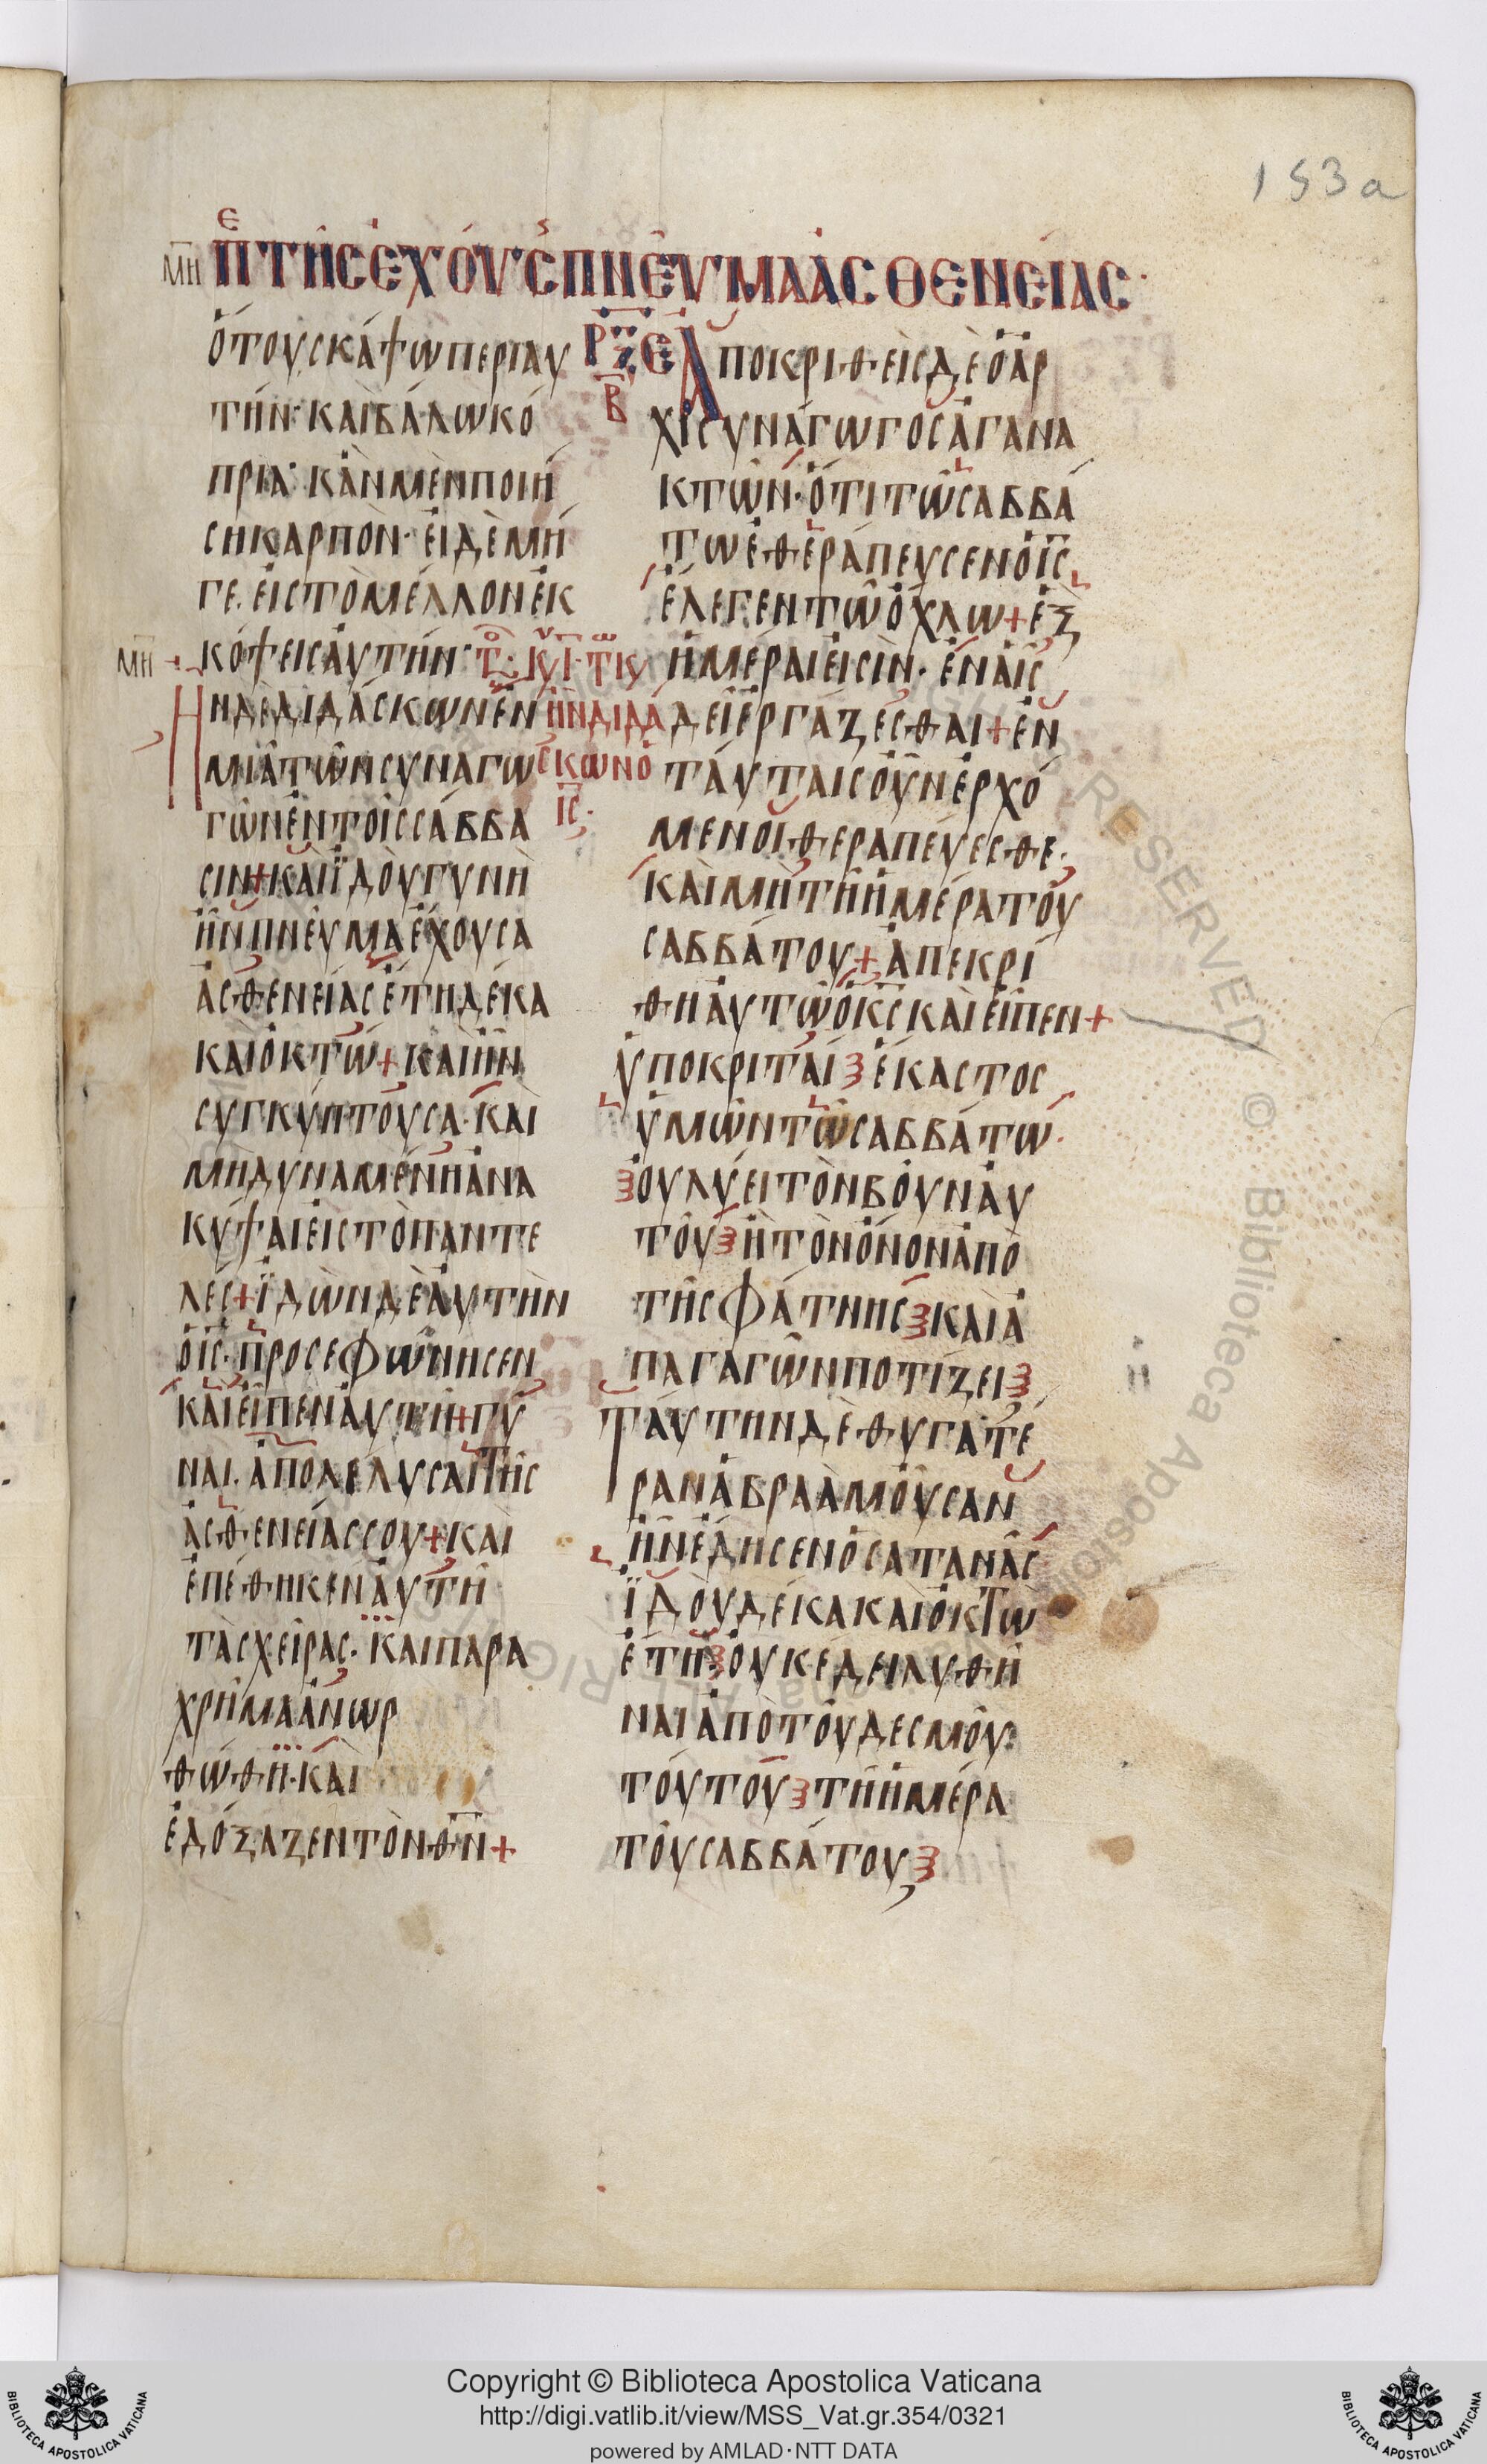 153a
ΜΗ Ε ΠΤΗΣΕΧΟΥΣΠΝΕΥΜΑΑΣΘΕΝΕΙΑΣ·
ὍΤΟΥΣΚΆΨΩΠΕΡΙΑΥ
ΤΉΝ· ΚΑῚΒΆΛΩΚΌ
ΠΡΙΑ· ΚἂΝΜῈΝΠΟΙΉ
ΣΗΚΑΡΠΌΝ· ΕἸΔῈΜΉ
ΓΕ. ΕἸΣΤῸΜΈΛΛΟΝἘΚ
ΜΗ + ΚΌΨΕΙΣΑΥΤΉΝ·
ΗΝΔῈΔΙΔΆΣΚΩΝἘΝ
ΜΙΑ͂ΤΩ͂ΝΣΥΝΑΓΩ
ΓΩ͂ΝἘΝΤΟΙ͂ΣΣΆΒΒΑ
ΣΙΝ+ΚΑῚΪΔΟῪΓΥΝῊ
ἮΝΠΝΕΥ͂ΜΑἜΧΟΥΣΑ
ἈΣΘΕΝΕΊΑΣἜΤΗΔΈΚΑ
ΚΑῚὈΚΤΏ+ΚΑῚἮΝ
ΣΥΓΚΎΠΤΟΥΣΑ·ΚΑῚ
ΜῊΔΥΝΑΜΈΝΗἈΝΑ
ΚΎΨΑΙΕἸΣΤῸΠΑΝΤΕ
ΛΈΣ+ΪΔῺΝΔῈΑΥΤῊΝ
ὉΙΣ·ΠΡΟΣΕΦΏΝΗΣΕΝ
ΚΑῚΕἾΠΕΝΑΥΤΗ͂+ΓΎ
ΝΑΙ. ἈΠΟΛΕΛΥΣΑΙΤΗ͂Σ
ἈΣΘΕΝΕΊΑΣΣΟΥ+ΚΑῚ
ἘΠΈΘΗΚΕΝΑΥΤΗ͂
ΤᾺΣΧΕΙ͂ΡΑΣ·ΚΑΙΠΑΡΑ
ΧΡΗ͂ΜΑἈΝΩΡ
ΘΏΘΗ·ΚΑῚ
ἘΔΌΞΑΖΕΝΤῸΝΘΝ+
Τ·ΚΙ·ΤΚ
ἮΝΔΙΔΆ
ΣΚΩΝὉ
ΙΣ·
ΡΞΕ
Β
ἈΠΟΚΡΙΘΕῚΣΔῈὉἈΡ
ΧΙΣΥΝΆΓΩΓΟΣἈΓΑΝΑ
ΚΤΩ͂Ν·ὍΤΙΤΩ͂ΣΑΒΒΆ
ΤΩἘΘΕΡΆΠΕΥΣΕΝὉΙΣ
ἜΛΕΓΕΝΤΩ͂ὌΧΛΩ+ἝΞ
ἩΜΈΡΑΙΕἸΣῚΝ·ἘΝΑἿΣ
ΔΕΙ͂ἘΡΓΆΖΕΣΘΑΙ+ἘΝ
ΤΑΎΤΑΙΣΟΥ͂ΝἘΡΧΌ
ΜΕΝΟΙΘΕΡΑΠΕΎΕΣΘΕ·
ΚΑῚΜῊΤΗ͂ἩΜΈΡΑΤΟΥ͂
ΣΑΒΒΆΤΟΥ+ἈΠΕΚΡΊ
ΘΗΑΥΤΩ͂ὉΚΣΚΑῚΕἾΠΕΝ+
ὙΠΟΚΡΙΤΑΊἝΚΑΣΤΟΣ
ὙΜΩ͂ΝΤΩ͂ΣΑΒΒΆΤΩ·
ΟΥΛΎΕΙΤῸΝΒΟΥ͂ΝΑΥ
ΤΟΥ͂ἪΤῸΝὌΝΟΝἈΠῸ
ΤΗ͂ΣΦΆΤΝΗΣΚΑῚἈ
ΠΑΓΑΓῺΝΠΟΤΊΖΕΙ
ΤΑΎΤΗΝΔῈΘΥΓΑΤΈ
ΡΑΝἈΒΡΑᾺΜΟΥ͂ΣΑΝ
ἫΝἜΔΗΣΕΝὉΣΑΤΑΝΑ͂Σ
ΪΔΟῪΔΈΚΑΚΑῚὈΚΤΩ
ἜΤΗ·ΟΥΚΈΔΕΙΛΥΘΗ͂
ΝΑΙἈΠῸΤΟΥ͂ΔΕΣΜΟΥ͂·
ΤΟΎΤΟΥΤΗ͂ἩΜΈΡΑ
ΤΟΥ͂ΣΑΒΒΆΤΟΥ
Copyright © Biblioteca Apostolica Vaticana
http://digi.vatlib.it/view/MSS_Vat.gr.354/0321
powered by AMLAD·NTT DATA
BIBLIOTECA APOSTOLICA VATICANA
BIBLIOTECA APOSTOLICA VATICANA